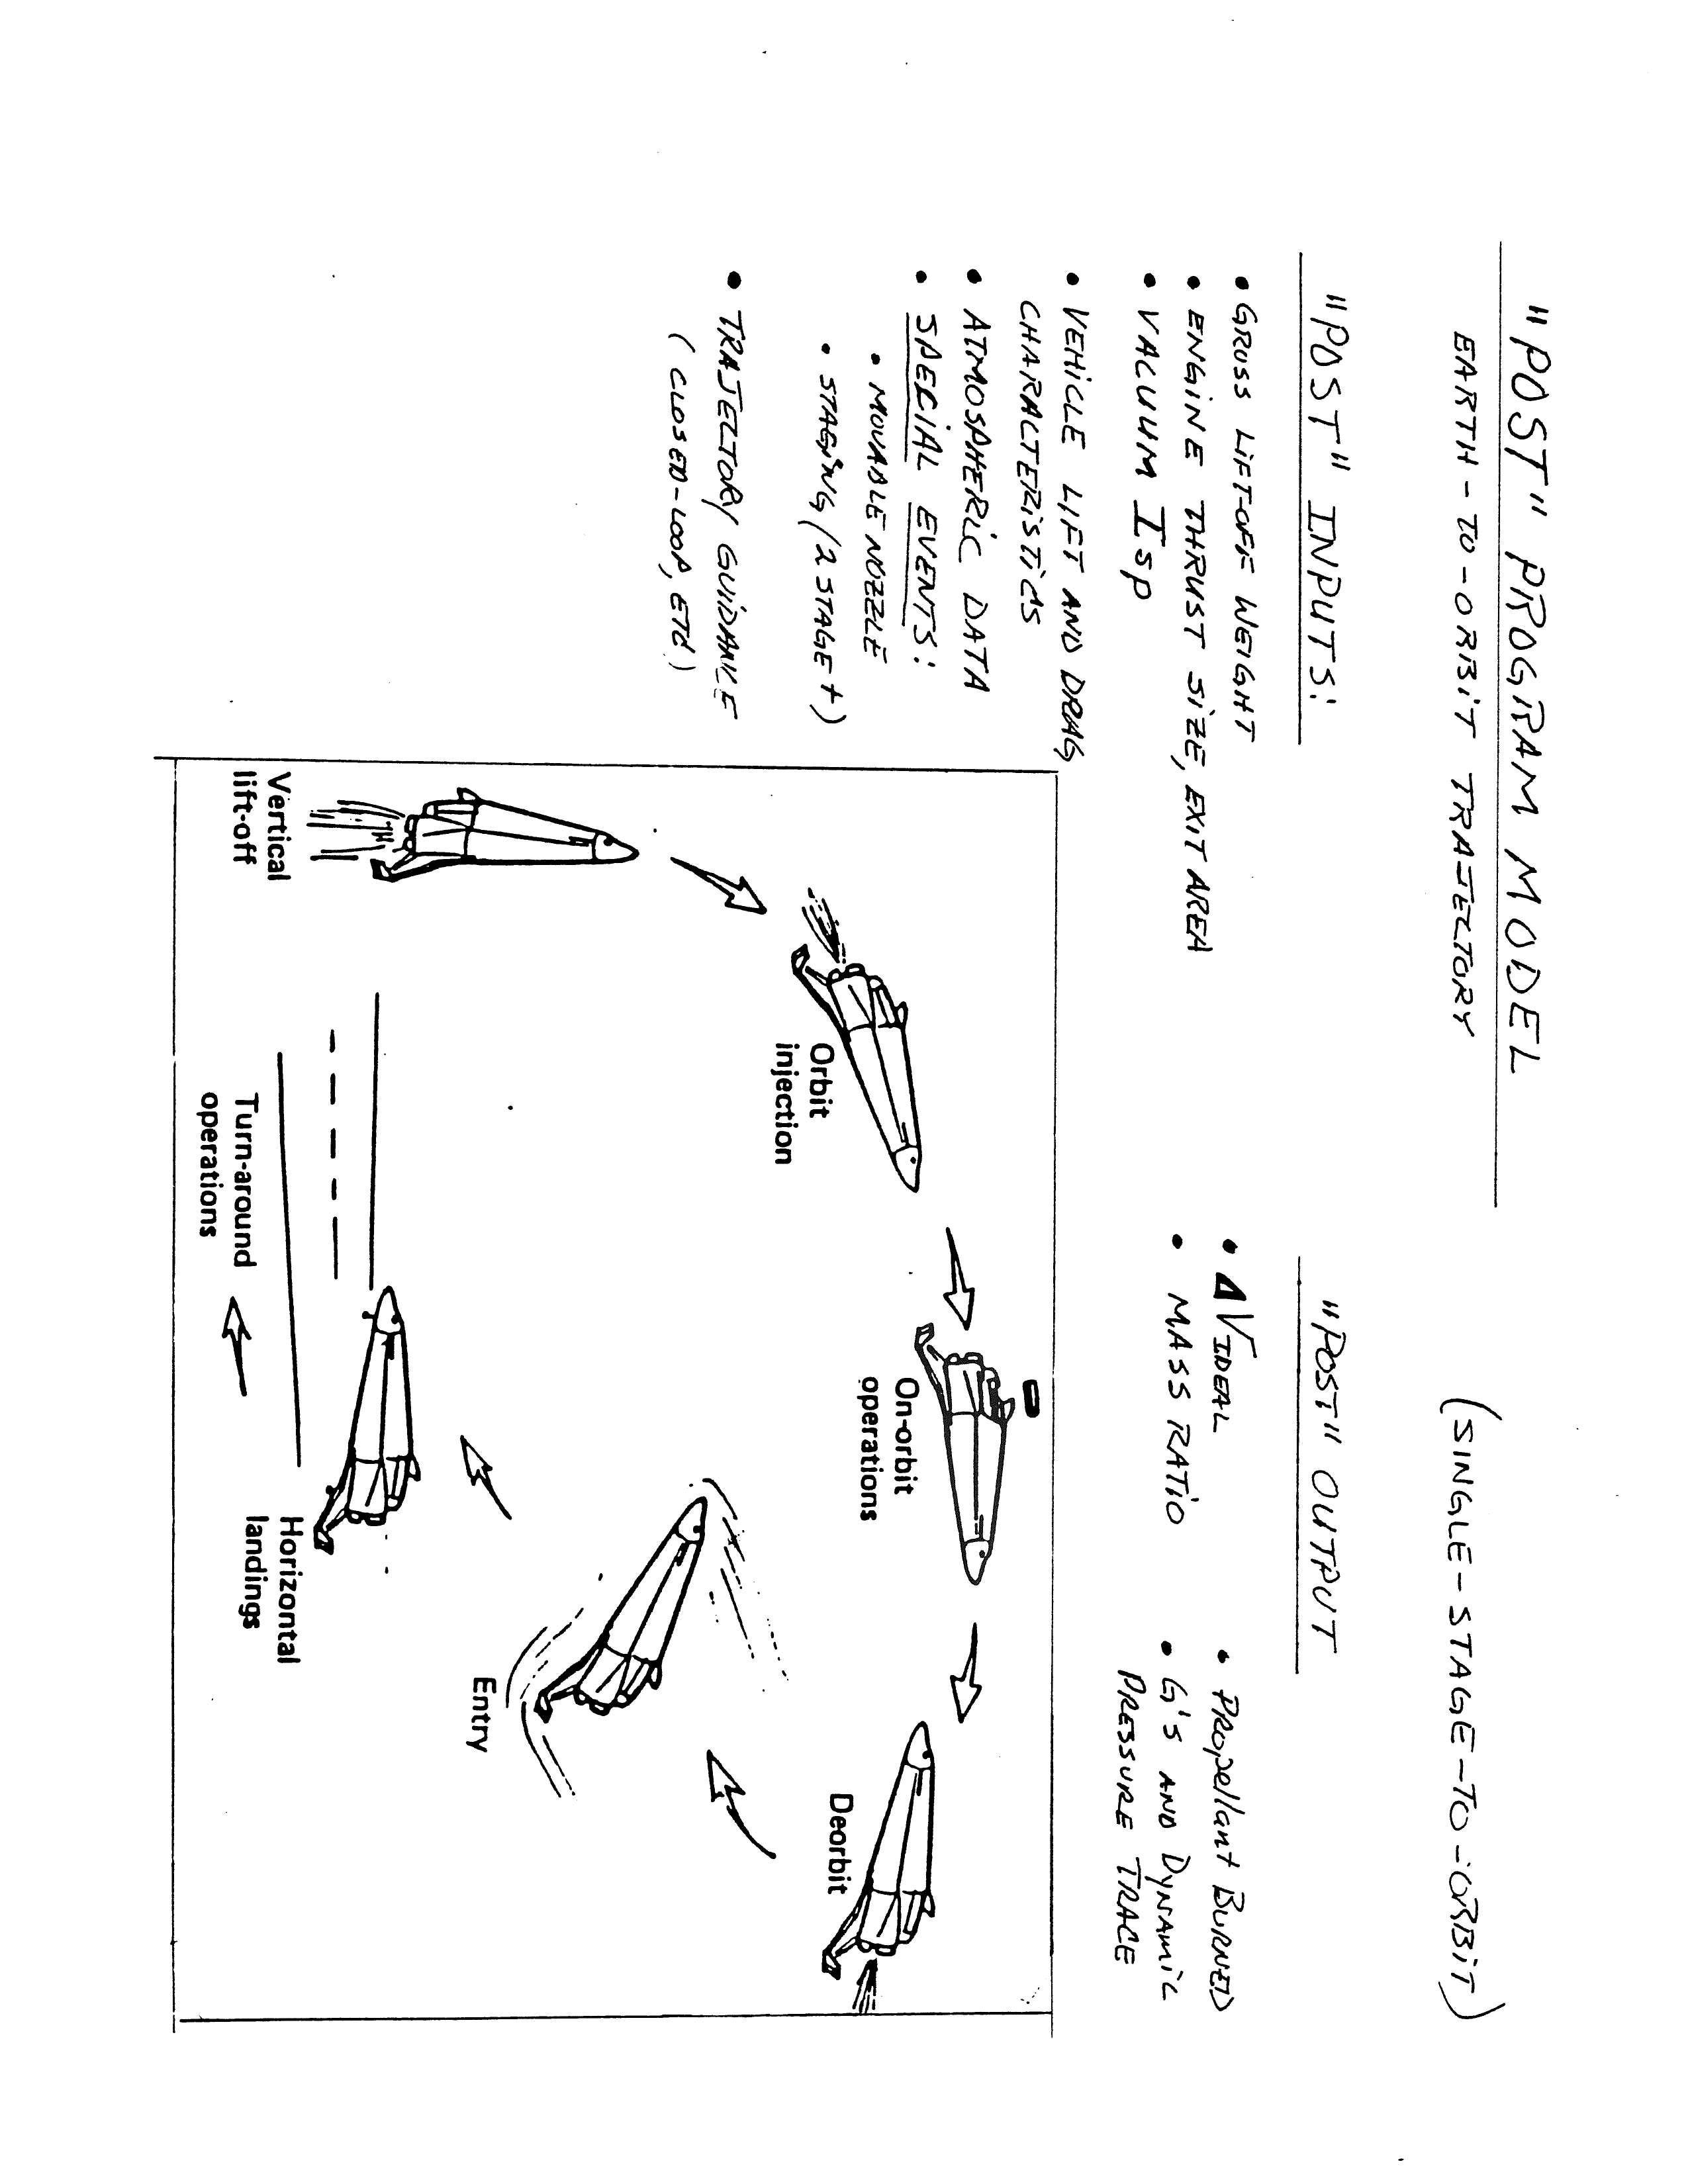 "POST" PROGRAM MODEL
EARTH-TO-ORBIT TRAJECTORY
(SINGLE-STAGE-TO-ORBIT)
"POST" INPUTS:
• GROSS LIFT-OFF WEIGHT
• ENGINE THRUST SIZE, EXIT AREA
• VACUUM Isp
• VEHICLE LIFT AND DRAG
CHARACTERISTICS
• ATMOSPHERIC DATA
• SPECIAL EVENTS:
• MOVABLE NOZZLE
• STAGING (2 STAGE +)
• TRAJECTORY GUIDANCE
(CLOSED-LOOP, ETC)
"POST" OUTPUT
• ΔVIDEAL
• MASS RATIO
• Propellant BURNED
• G'S AND DYNAMIC
PRESSURE TRACE
Vertical
lift-off
Orbit
injection
On-orbit
operations
Deorbit
Entry
Horizontal
landings
Turn-around
operations